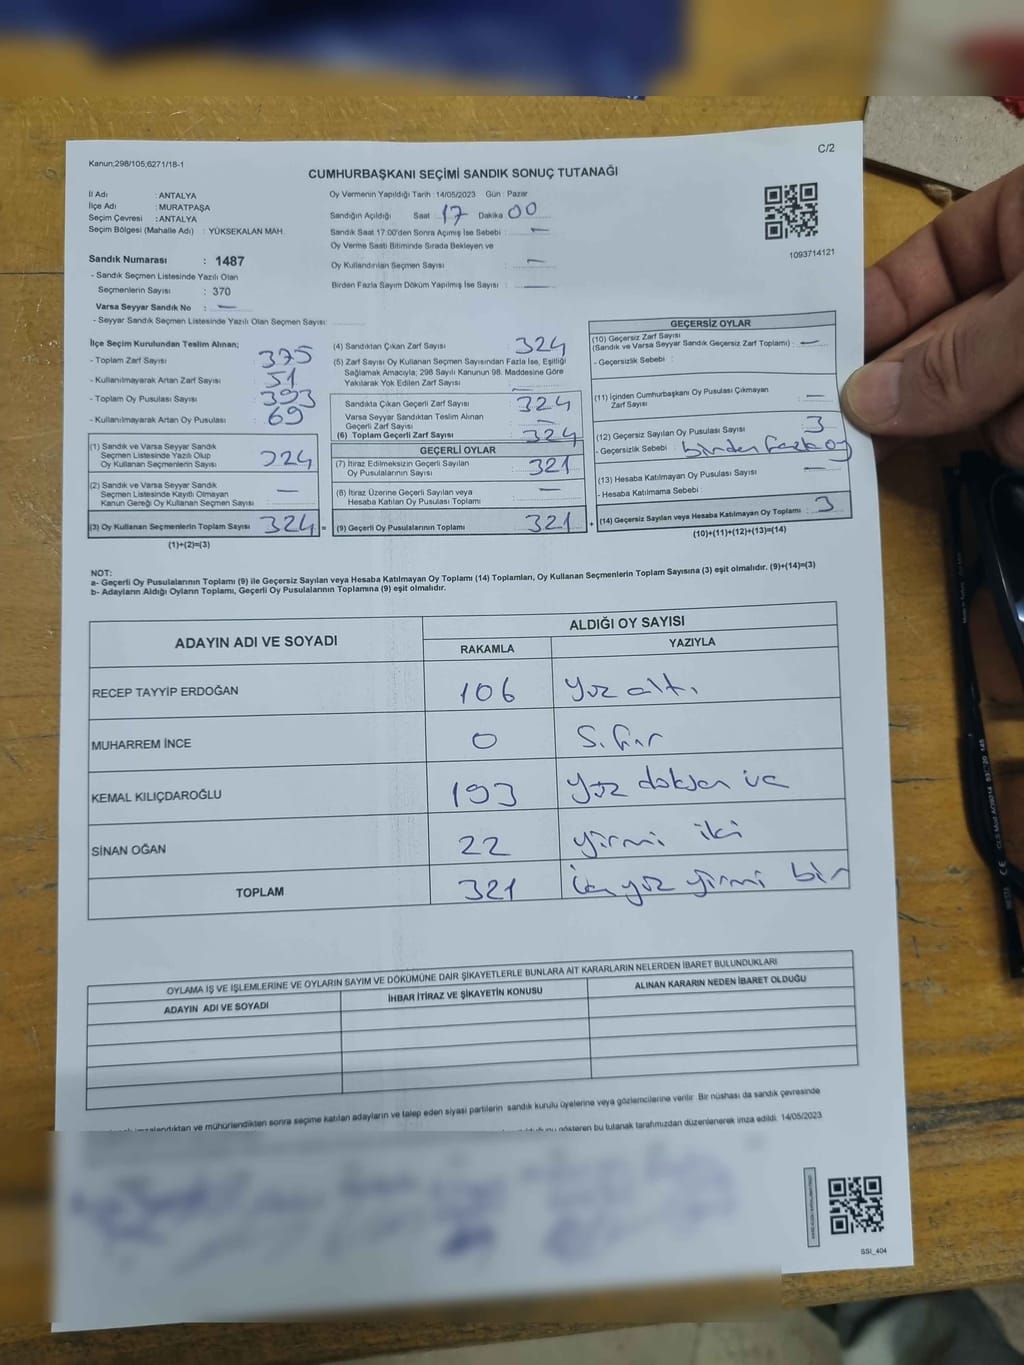 Kanun;298/105,6271/18-1
C/2
CUMHURBAŞKANI SEÇİMİ SANDIK SONUÇ TUTANAĞI
İl Adı : ANTALYA
İlçe Adı : MURATPAŞA
Seçim Çevresi : ANTALYA
Seçim Bölgesi (Mahalle Adı) : YÜKSEKALAN MAH.
Sandık Numarası : 1487
- Sandık Seçmen Listesinde Yazılı Olan
Seçmenlerin Sayısı : 370
Varsa Seyyar Sandık No : —
- Seyyar Sandık Seçmen Listesinde Yazılı Olan Seçmen Sayısı:
Oy Vermenin Yapıldığı Tarih :14/05/2023 Gün : Pazar
Sandığın Açıldığı Saat 17 Dakika 00
Sandık Saat 17:00'den Sonra Açılmış İse Sebebi : —
Oy Verme Saati Bitiminde Sırada Bekleyen ve
Oy Kullandırılan Seçmen Sayısı : —
Birden Fazla Sayım Döküm Yapılmış İse Sayısı : —
1093714121
İlçe Seçim Kurulundan Teslim Alınan;
- Toplam Zarf Sayısı 375
- Kullanılmayarak Artan Zarf Sayısı 51
- Toplam Oy Pusulası Sayısı 393
- Kullanılmayarak Artan Oy Pusulası 69
(1) Sandık ve Varsa Seyyar Sandık
Seçmen Listesinde Yazılı Olup
Oy Kullanan Seçmenlerin Sayısı 324
(2) Sandık ve Varsa Seyyar Sandık
Seçmen Listesinde Kayıtlı Olmayan
Kanun Gereği Oy Kullanan Seçmen Sayısı —
(3) Oy Kullanan Seçmenlerin Toplam Sayısı 324 =
(1)+(2)=(3)
(4) Sandıktan Çıkan Zarf Sayısı 324
(5) Zarf Sayısı Oy Kullanan Seçmen Sayısından Fazla İse, Eşitliği
Sağlamak Amacıyla; 298 Sayılı Kanunun 98. Maddesine Göre
Yakılarak Yok Edilen Zarf Sayısı : —
Sandıkta Çıkan Geçerli Zarf Sayısı 324
Varsa Seyyar Sandıktan Teslim Alınan
Geçerli Zarf Sayısı —
(6) Toplam Geçerli Zarf Sayısı 324
GEÇERLİ OYLAR
(7) İtiraz Edilmeksizin Geçerli Sayılan
Oy Pusulalarının Sayısı 321
(8) İtiraz Üzerine Geçerli Sayılan veya
Hesaba Katılan Oy Pusulası Toplamı —
(9) Geçerli Oy Pusulalarının Toplamı 321 +
GEÇERSİZ OYLAR
(10) Geçersiz Zarf Sayısı
(Sandık ve Varsa Seyyar Sandık Geçersiz Zarf Toplamı) : —
- Geçersizlik Sebebi :
(11) İçinden Cumhurbaşkanı Oy Pusulası Çıkmayan
Zarf Sayısı —
(12) Geçersiz Sayılan Oy Pusulası Sayısı 3
- Geçersizlik Sebebi : birden fazla oy
(13) Hesaba Katılmayan Oy Pusulası Sayısı —
- Hesaba Katılmama Sebebi :
(14) Geçersiz Sayılan veya Hesaba Katılmayan Oy Toplamı : 3
(10)+(11)+(12)+(13)=(14)
NOT:
a- Geçerli Oy Pusulalarının Toplamı (9) ile Geçersiz Sayılan veya Hesaba Katılmayan Oy Toplamı (14) Toplamları, Oy Kullanan Seçmenlerin Toplam Sayısına (3) eşit olmalıdır. (9)+(14)=(3)
b- Adayların Aldığı Oyların Toplamı, Geçerli Oy Pusulalarının Toplamına (9) eşit olmalıdır.
ADAYIN ADI VE SOYADI
ALDIĞI OY SAYISI
RAKAMLA YAZIYLA
RECEP TAYYİP ERDOĞAN 106 Yüz altı
MUHARREM İNCE 0 Sıfır
KEMAL KILIÇDAROĞLU 193 Yüz doksan üç
SİNAN OĞAN 22 yirmi iki
TOPLAM 321 üç yüz yirmi bir
OYLAMA İŞ VE İŞLEMLERİNE VE OYLARIN SAYIM VE DÖKÜMÜNE DAİR ŞİKAYETLERLE BUNLARA AİT KARARLARIN NELERDEN İBARET BULUNDUKLARI
ADAYIN ADI VE SOYADI İHBAR İTİRAZ VE ŞİKAYETİN KONUSU ALINAN KARARIN NEDEN İBARET OLDUĞU
imzalandıktan ve mühürlendikten sonra seçime katılan adayların ve talep eden siyasi partilerin sandık kurulu üyelerine veya gözlemcilerine verilir. Bir nüshası da sandık çevresinde
gösteren bu tutanak tarafımızdan düzenlenerek imza edildi. 14/05/2023
SSI_404